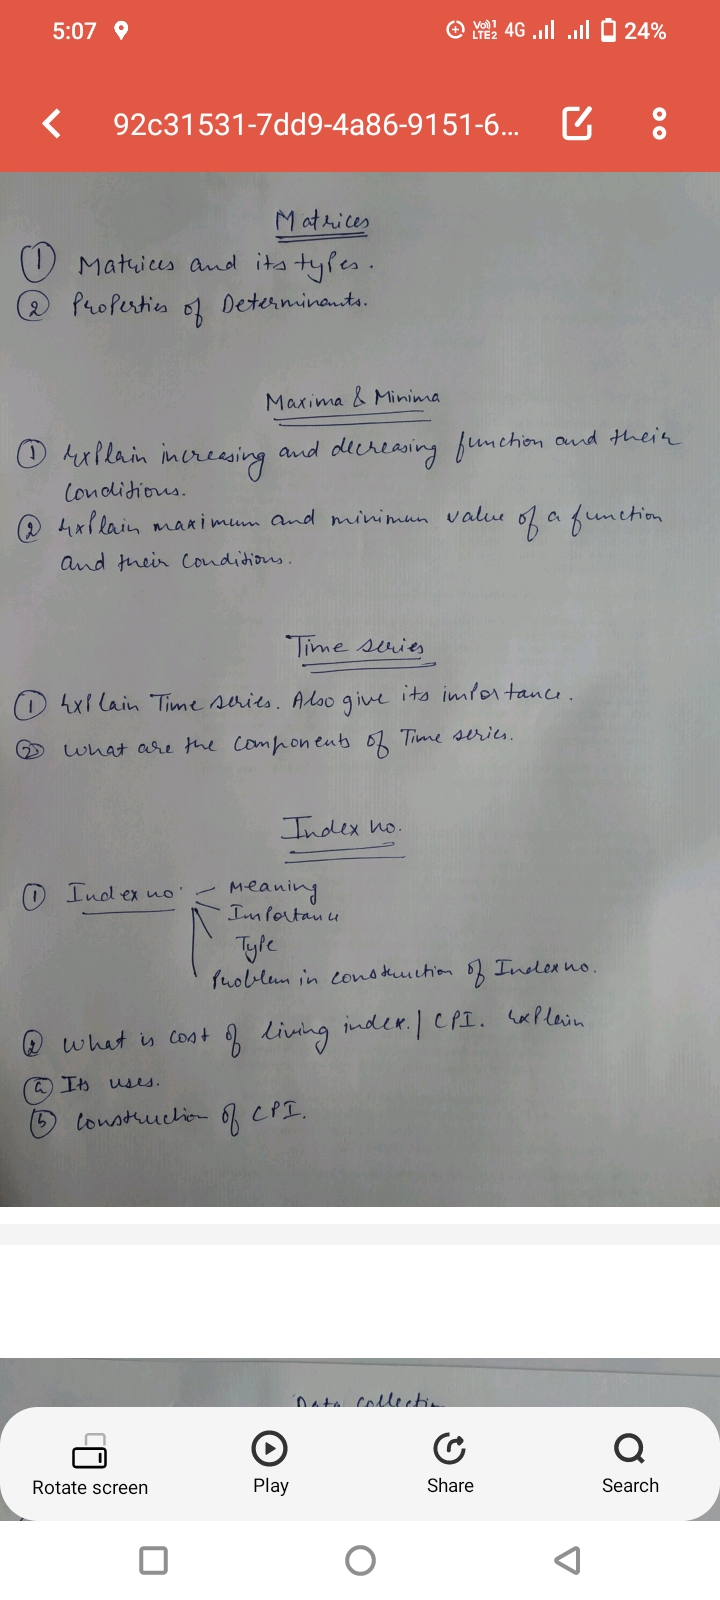 5:07
Vo)) 1 LTE2 4G 24%
92c31531-7dd9-4a86-9151-6...
Matrices
① Matrices and its types.
② Properties of Determinants.
Maxima & Minima
① Explain increasing and decreasing function and their
Conditions.
② Explain maximum and minimun value of a function
and their Conditions.
Time series
① Explain Time series. Also give its importance.
② What are the Components of Time series.
Index no.
① Index no. - Meaning
Importance
Type
Problem in construction of Index no.
② What is cost of living index. / CPI. Explain
ⓐ Its uses.
ⓑ Construction of CPI.
Data Collection
Rotate screen
Play
Share
Search